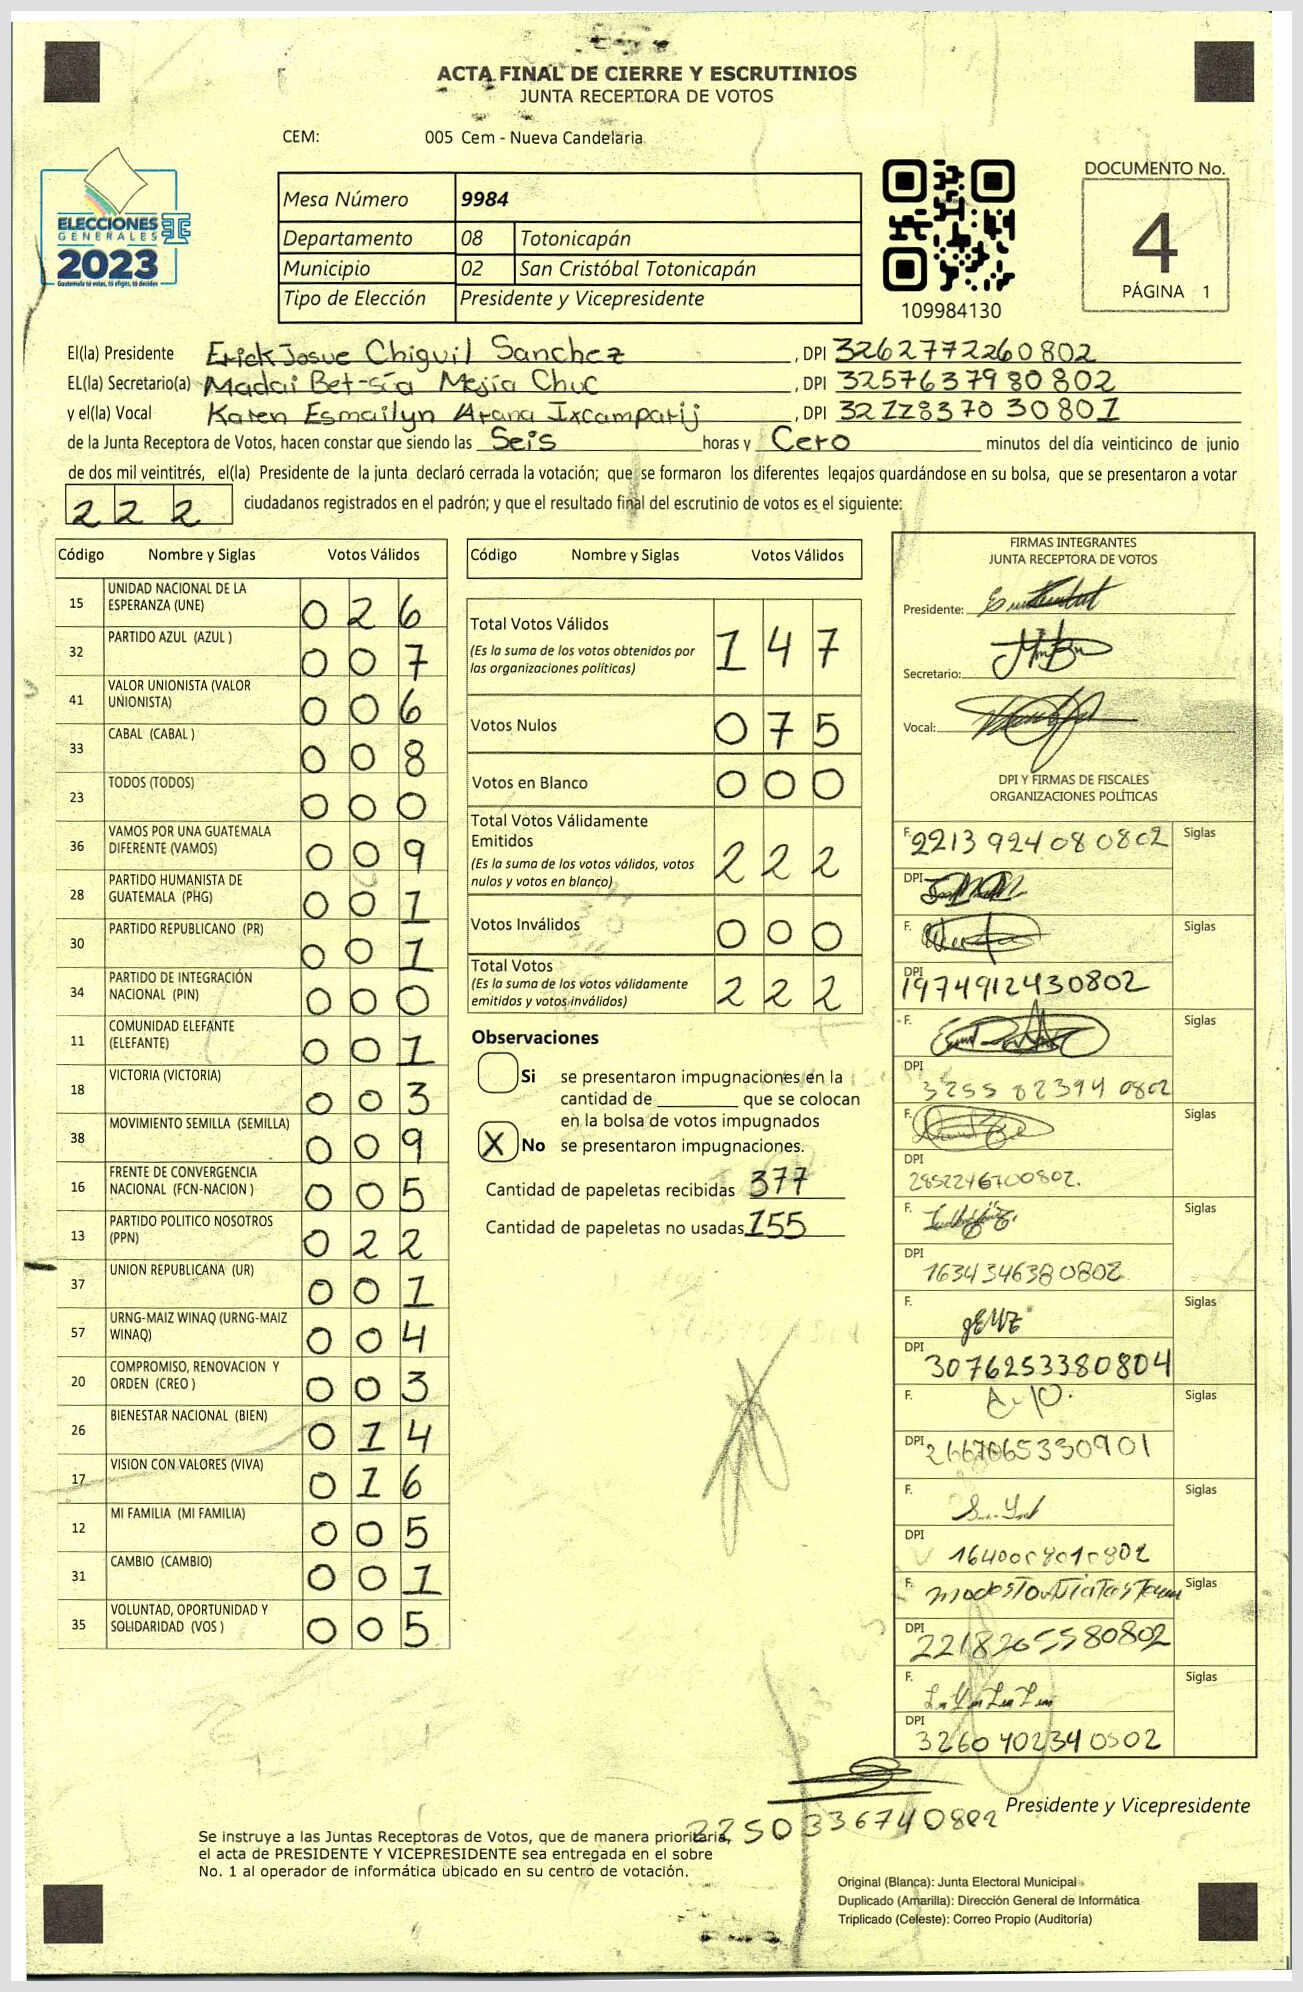 ACTA FINAL DE CIERRE Y ESCRUTINIOS
JUNTA RECEPTORA DE VOTOS
CEM: 005 Cem - Nueva Candelaria
ELECCIONES
GENERALES
2023
Guatemala tú votas, tú eliges, tú decides
Mesa Número 9984
Departamento 08 Totonicapán
Municipio 02 San Cristóbal Totonicapán
Tipo de Elección Presidente y Vicepresidente
109984130
DOCUMENTO No.
4
PÁGINA 1
El(la) Presidente Erick Josue Chiguil Sanchez, DPI 3262772260802
EL(la) Secretario(a) Madai Bet-sía Mejía Chuc, DPI 3257637980802
y el(la) Vocal Karen Esmailyn Arana Ixcamparij, DPI 3211837030801
de la Junta Receptora de Votos, hacen constar que siendo las Seis horas y Cero minutos del día veinticinco de junio
de dos mil veintitrés, el(la) Presidente de la junta declaró cerrada la votación; que se formaron los diferentes legajos quardándose en su bolsa, que se presentaron a votar
222 ciudadanos registrados en el padrón; y que el resultado final del escrutinio de votos es el siguiente:
Código Nombre y Siglas Votos Válidos
15 UNIDAD NACIONAL DE LA ESPERANZA (UNE) 026
32 PARTIDO AZUL (AZUL ) 007
41 VALOR UNIONISTA (VALOR UNIONISTA) 006
33 CABAL (CABAL ) 008
23 TODOS (TODOS) 000
36 VAMOS POR UNA GUATEMALA DIFERENTE (VAMOS) 009
28 PARTIDO HUMANISTA DE GUATEMALA (PHG) 001
30 PARTIDO REPUBLICANO (PR) 001
34 PARTIDO DE INTEGRACIÓN NACIONAL (PIN) 000
11 COMUNIDAD ELEFANTE (ELEFANTE) 001
18 VICTORIA (VICTORIA) 003
38 MOVIMIENTO SEMILLA (SEMILLA) 009
16 FRENTE DE CONVERGENCIA NACIONAL (FCN-NACION ) 005
13 PARTIDO POLITICO NOSOTROS (PPN) 022
37 UNION REPUBLICANA (UR) 001
57 URNG-MAIZ WINAQ (URNG-MAIZ WINAQ) 004
20 COMPROMISO, RENOVACION Y ORDEN (CREO ) 003
26 BIENESTAR NACIONAL (BIEN) 014
17 VISION CON VALORES (VIVA) 016
12 MI FAMILIA (MI FAMILIA) 005
31 CAMBIO (CAMBIO) 001
35 VOLUNTAD, OPORTUNIDAD Y SOLIDARIDAD (VOS ) 005
Código Nombre y Siglas Votos Válidos
Total Votos Válidos 147
(Es la suma de los votos obtenidos por
las organizaciones políticas)
Votos Nulos 075
Votos en Blanco 000
Total Votos Válidamente
Emitidos 222
(Es la suma de los votos válidos, votos
nulos y votos en blanco)
Votos Inválidos 000
Total Votos 222
(Es la suma de los votos válidamente
emitidos y votos inválidos)
Observaciones
Si se presentaron impugnaciones en la
cantidad de que se colocan
en la bolsa de votos impugnados
X No se presentaron impugnaciones.
Cantidad de papeletas recibidas 377
Cantidad de papeletas no usadas 155
FIRMAS INTEGRANTES
JUNTA RECEPTORA DE VOTOS
Presidente:
Secretario:
Vocal:
DPI Y FIRMAS DE FISCALES
ORGANIZACIONES POLÍTICAS
F. 2213924080802 Siglas
DPI
F. Siglas
DPI 1974912430802
F. Siglas
DPI 3255823940802
F. Siglas
DPI 2852246700802.
F. Siglas
DPI 1634346380802
F. Siglas
DPI 3076253380804
F. Siglas
DPI
F. Siglas
DPI
F. Siglas
DPI 2218265580802
F. Siglas
DPI
Presidente y Vicepresidente
Se instruye a las Juntas Receptoras de Votos, que de manera prioritaria,
el acta de PRESIDENTE Y VICEPRESIDENTE sea entregada en el sobre
No. 1 al operador de informática ubicado en su centro de votación.
Original (Blanca): Junta Electoral Municipal
Duplicado (Amarilla): Dirección General de Informática
Triplicado (Celeste): Correo Propio (Auditoría)